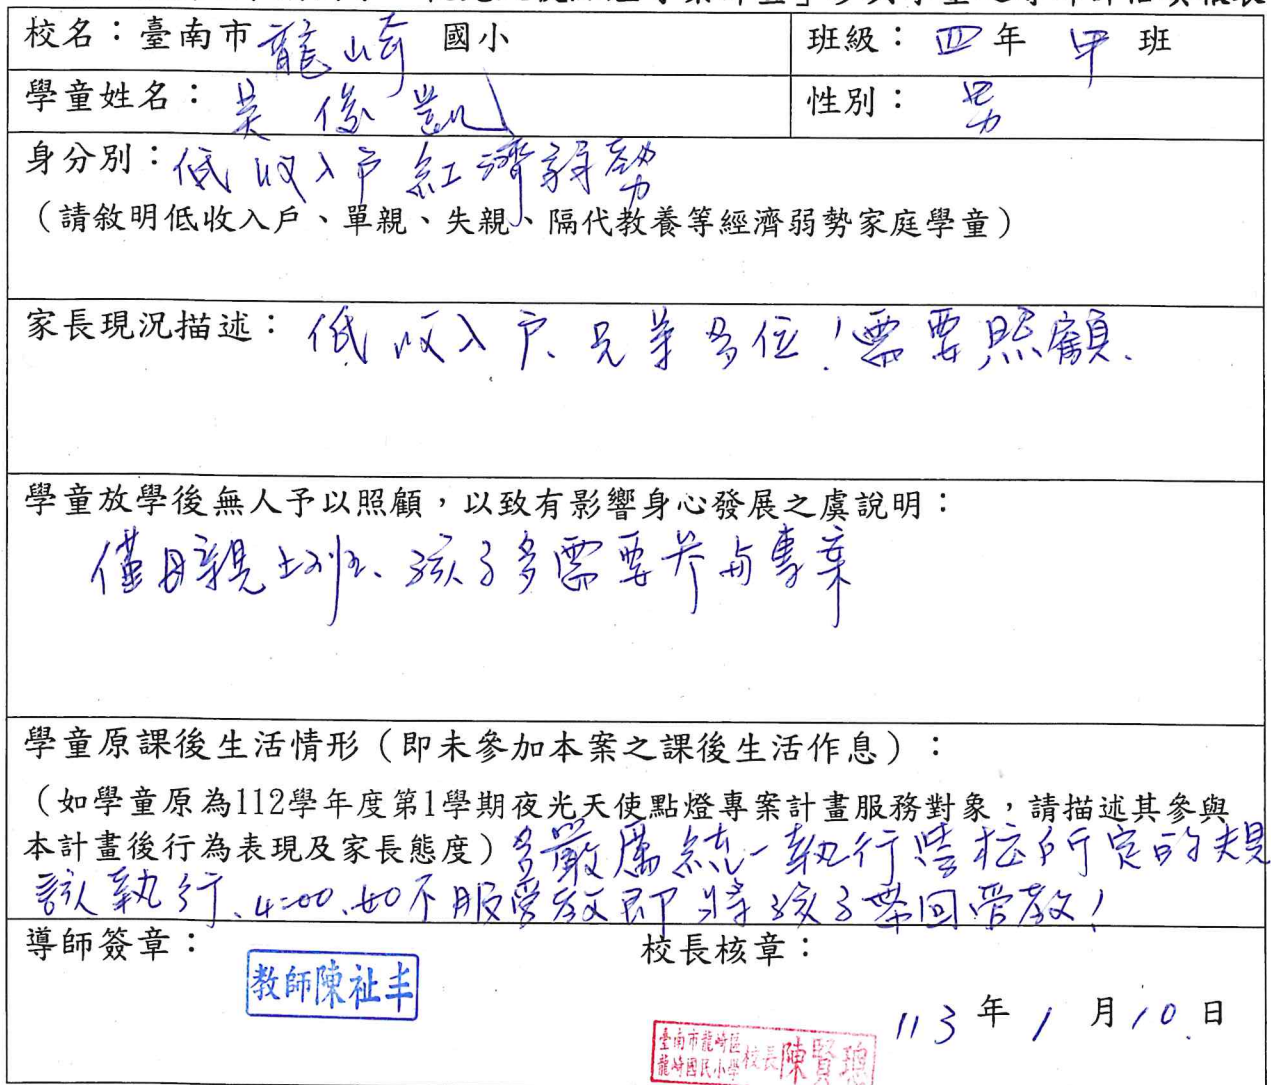 校名：臺南市龍崎國小 班級：四年甲班
學童姓名：吳俊凱 性別：男
身分別：低收入戶經濟弱勢
（請敘明低收入戶、單親、失親、隔代教養等經濟弱勢家庭學童）
家長現況描述：低收入戶、兄弟多位！需要照顧、
學童放學後無人予以照顧，以致有影響身心發展之虞說明：
僅母親上班、孩子多需要參與專案
學童原課後生活情形（即未參加本案之課後生活作息）：
（如學童原為112學年度第1學期夜光天使點燈專案計畫服務對象，請描述其參與
本計畫後行為表現及家長態度）嚴厲統一執行 校所定的規
該執行、4:00、如不服管教即將孩子帶回管教！
導師簽章： 校長核章：
教師陳祉丰
113年1月10日
臺南市龍崎區
龍崎國民小學校長陳賢聰